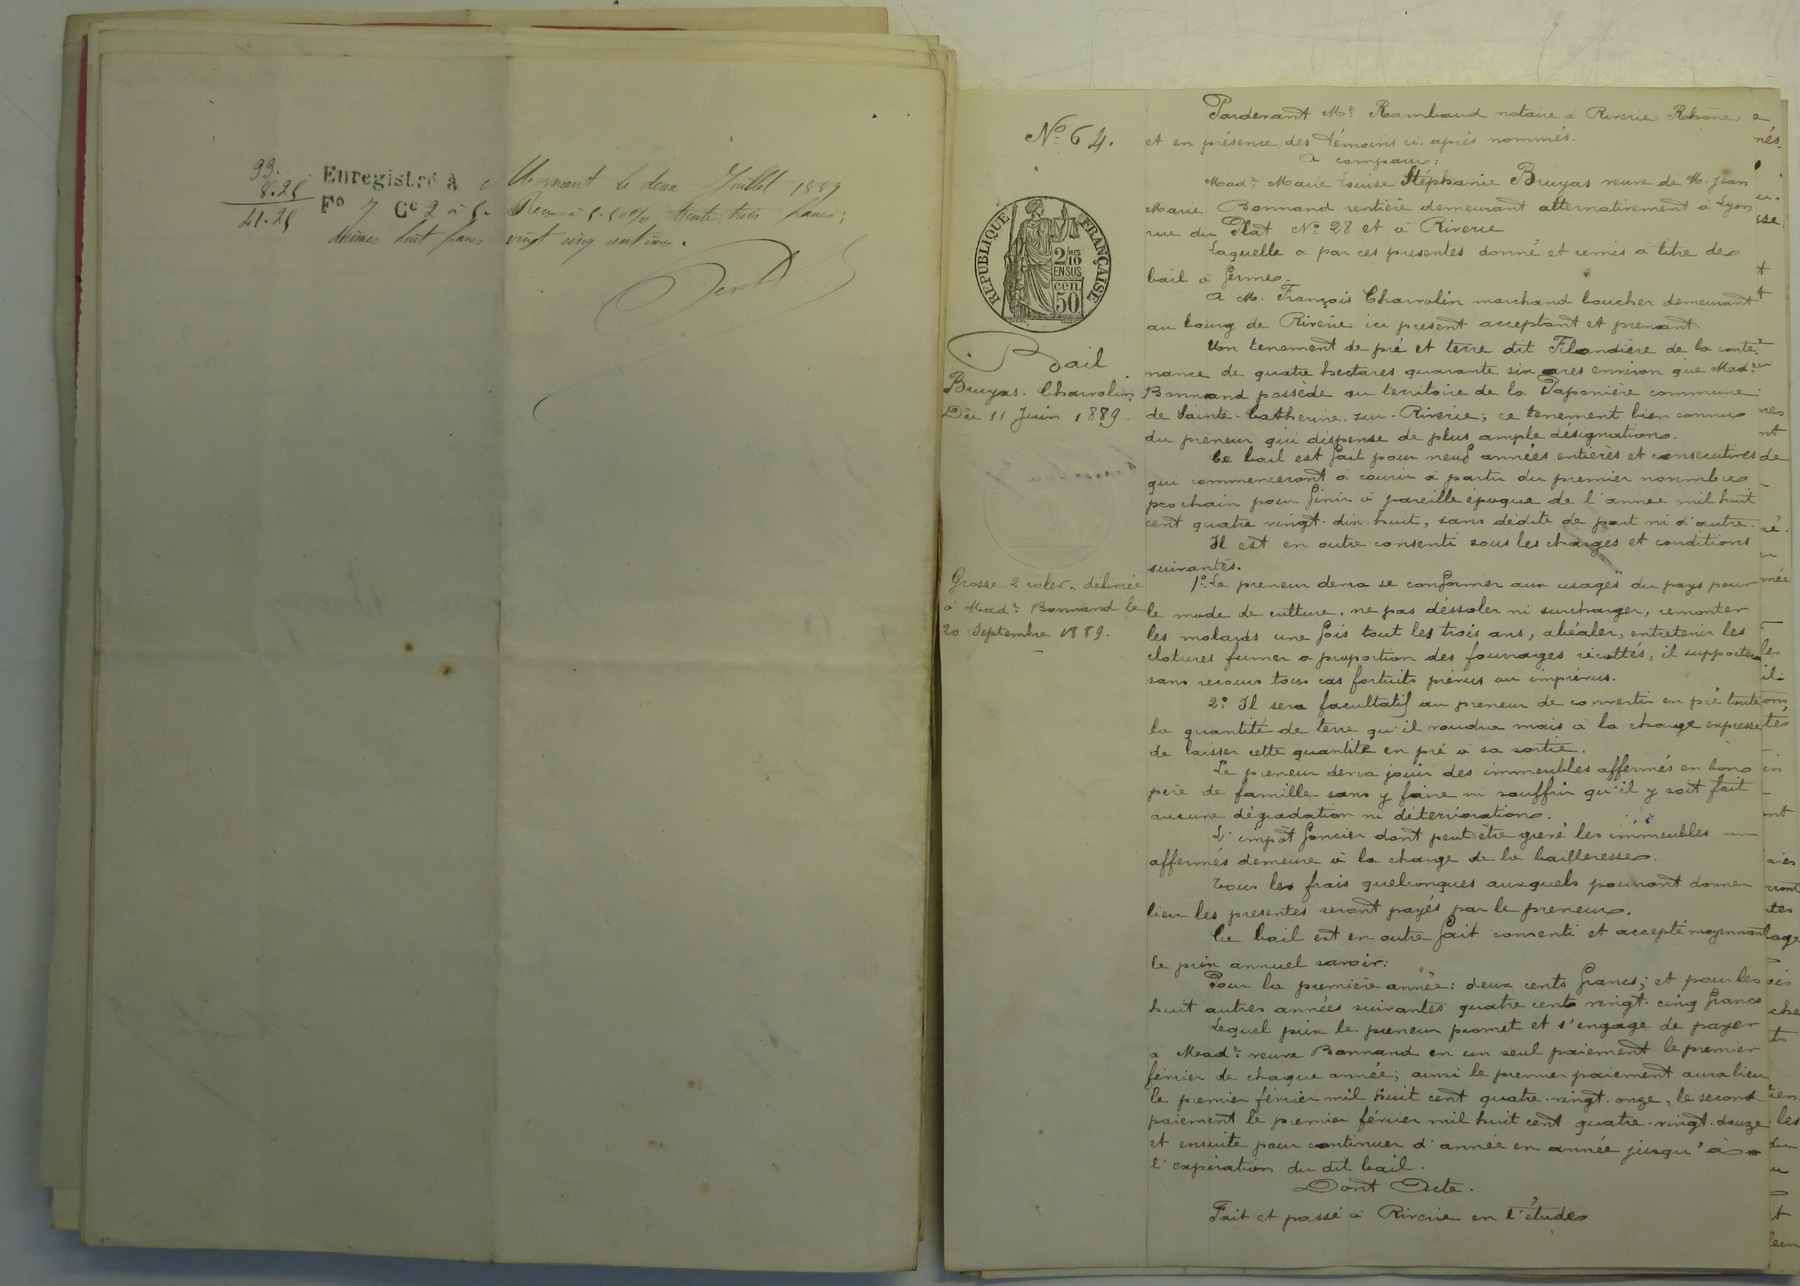 33.
8.25
41.25
Enregistré à Mornant le deux Juillet 1889
Fo 7 Ce 2 à 5. Reçu à trente trois francs;
décimes huit francs vingt cinq centimes.
No 64.
RÉPUBLIQUE FRANÇAISE
2/10 MES
EN SUS
cen
50
Bail
Bruyas. Charvolin
Du 11 Juin 1889.
Grosse 2 roles, délivrée
à Made Bonnand le
20 Septembre 1889.
Pardevant Me Rambaud notaire à Riverie Rhône
et en présence des témoins ci après nommés.
A comparu:
Made Marie Louise Stéphanie Bruyas veuve de M. Jean
Marie Bonnand rentière demeurant alternativement à Lyon
rue du Plat No 28 et à Riverie
Laquelle a par ces présentes donné et remis à titre de
bail à ferme.
A M. François Charvolin marchand boucher demeurant
au bourg de Riverie ici présent acceptant et prenant.
Un tenement de pré et terre dit Filandière de la conte-
nance de quatre hectares quarante six ares environ que Made
Bonnand possède au territoire de la Paponière commune
de Sainte-Catherine-sur-Riverie; ce tenement bien connu
du preneur qui dispense de plus ample désignation.
Ce bail est fait pour neuf années entières et consecutives
qui commenceront à courir à partir du premier novembre
prochain pour finir à pareille époque de l'année mil huit
cent quatre vingt-dix-huit, sans dédite de part ni d'autre.
Il est en outre consenti sous les charges et conditions
suivantes.
1o Le preneur devra se conformer aux usages du pays pour
le mode de culture, ne pas déssoler ni surcharger, remonter
les molards une fois tout les trois ans, abéaler, entretenir les
clotures fumer a proportion des fourrages récoltés, il supportera
sans recours tous cas fortuits prévus ou imprévus.
2o Il sera facultatif au preneur de convertir en pré toute
la quantité de terre qu'il voudra mais à la charge expresse
de laisser cette quantité en pré à sa sortie.
Le preneur devra jouir des immeubles affermés en bon
père de famille sans y faire ni souffrir qu'il y soit fait
aucune dégradation ni déterioration.
L'impôt foncier dont peut être grevé les immeubles
affermés demeure à la charge de la bailleresse.
Tous les frais quelconques auxquels pourront donner
lieu les présentes seront payés par le preneur.
Ce bail est en outre fait consenti et accepté moyennant
le prix annuel savoir:
Pour la première année: deux cents francs; et pour les
huit autres années suivantes quatre cents vingt-cinq francs
Lequel prix le preneur promet et s'engage de payer
à Made veuve Bonnand en un seul paiement le premier
février de chaque année; ainsi le premier paiement aura lieu
le premier février mil huit cent quatre-vingt-onze, le second
paiement le premier février mil huit cent quatre-vingt-douze
et ensuite pour continuer d'année en année jusqu'à
l'expiration du dit bail.
Dont Acte.
Fait et passé à Riverie en l'étude